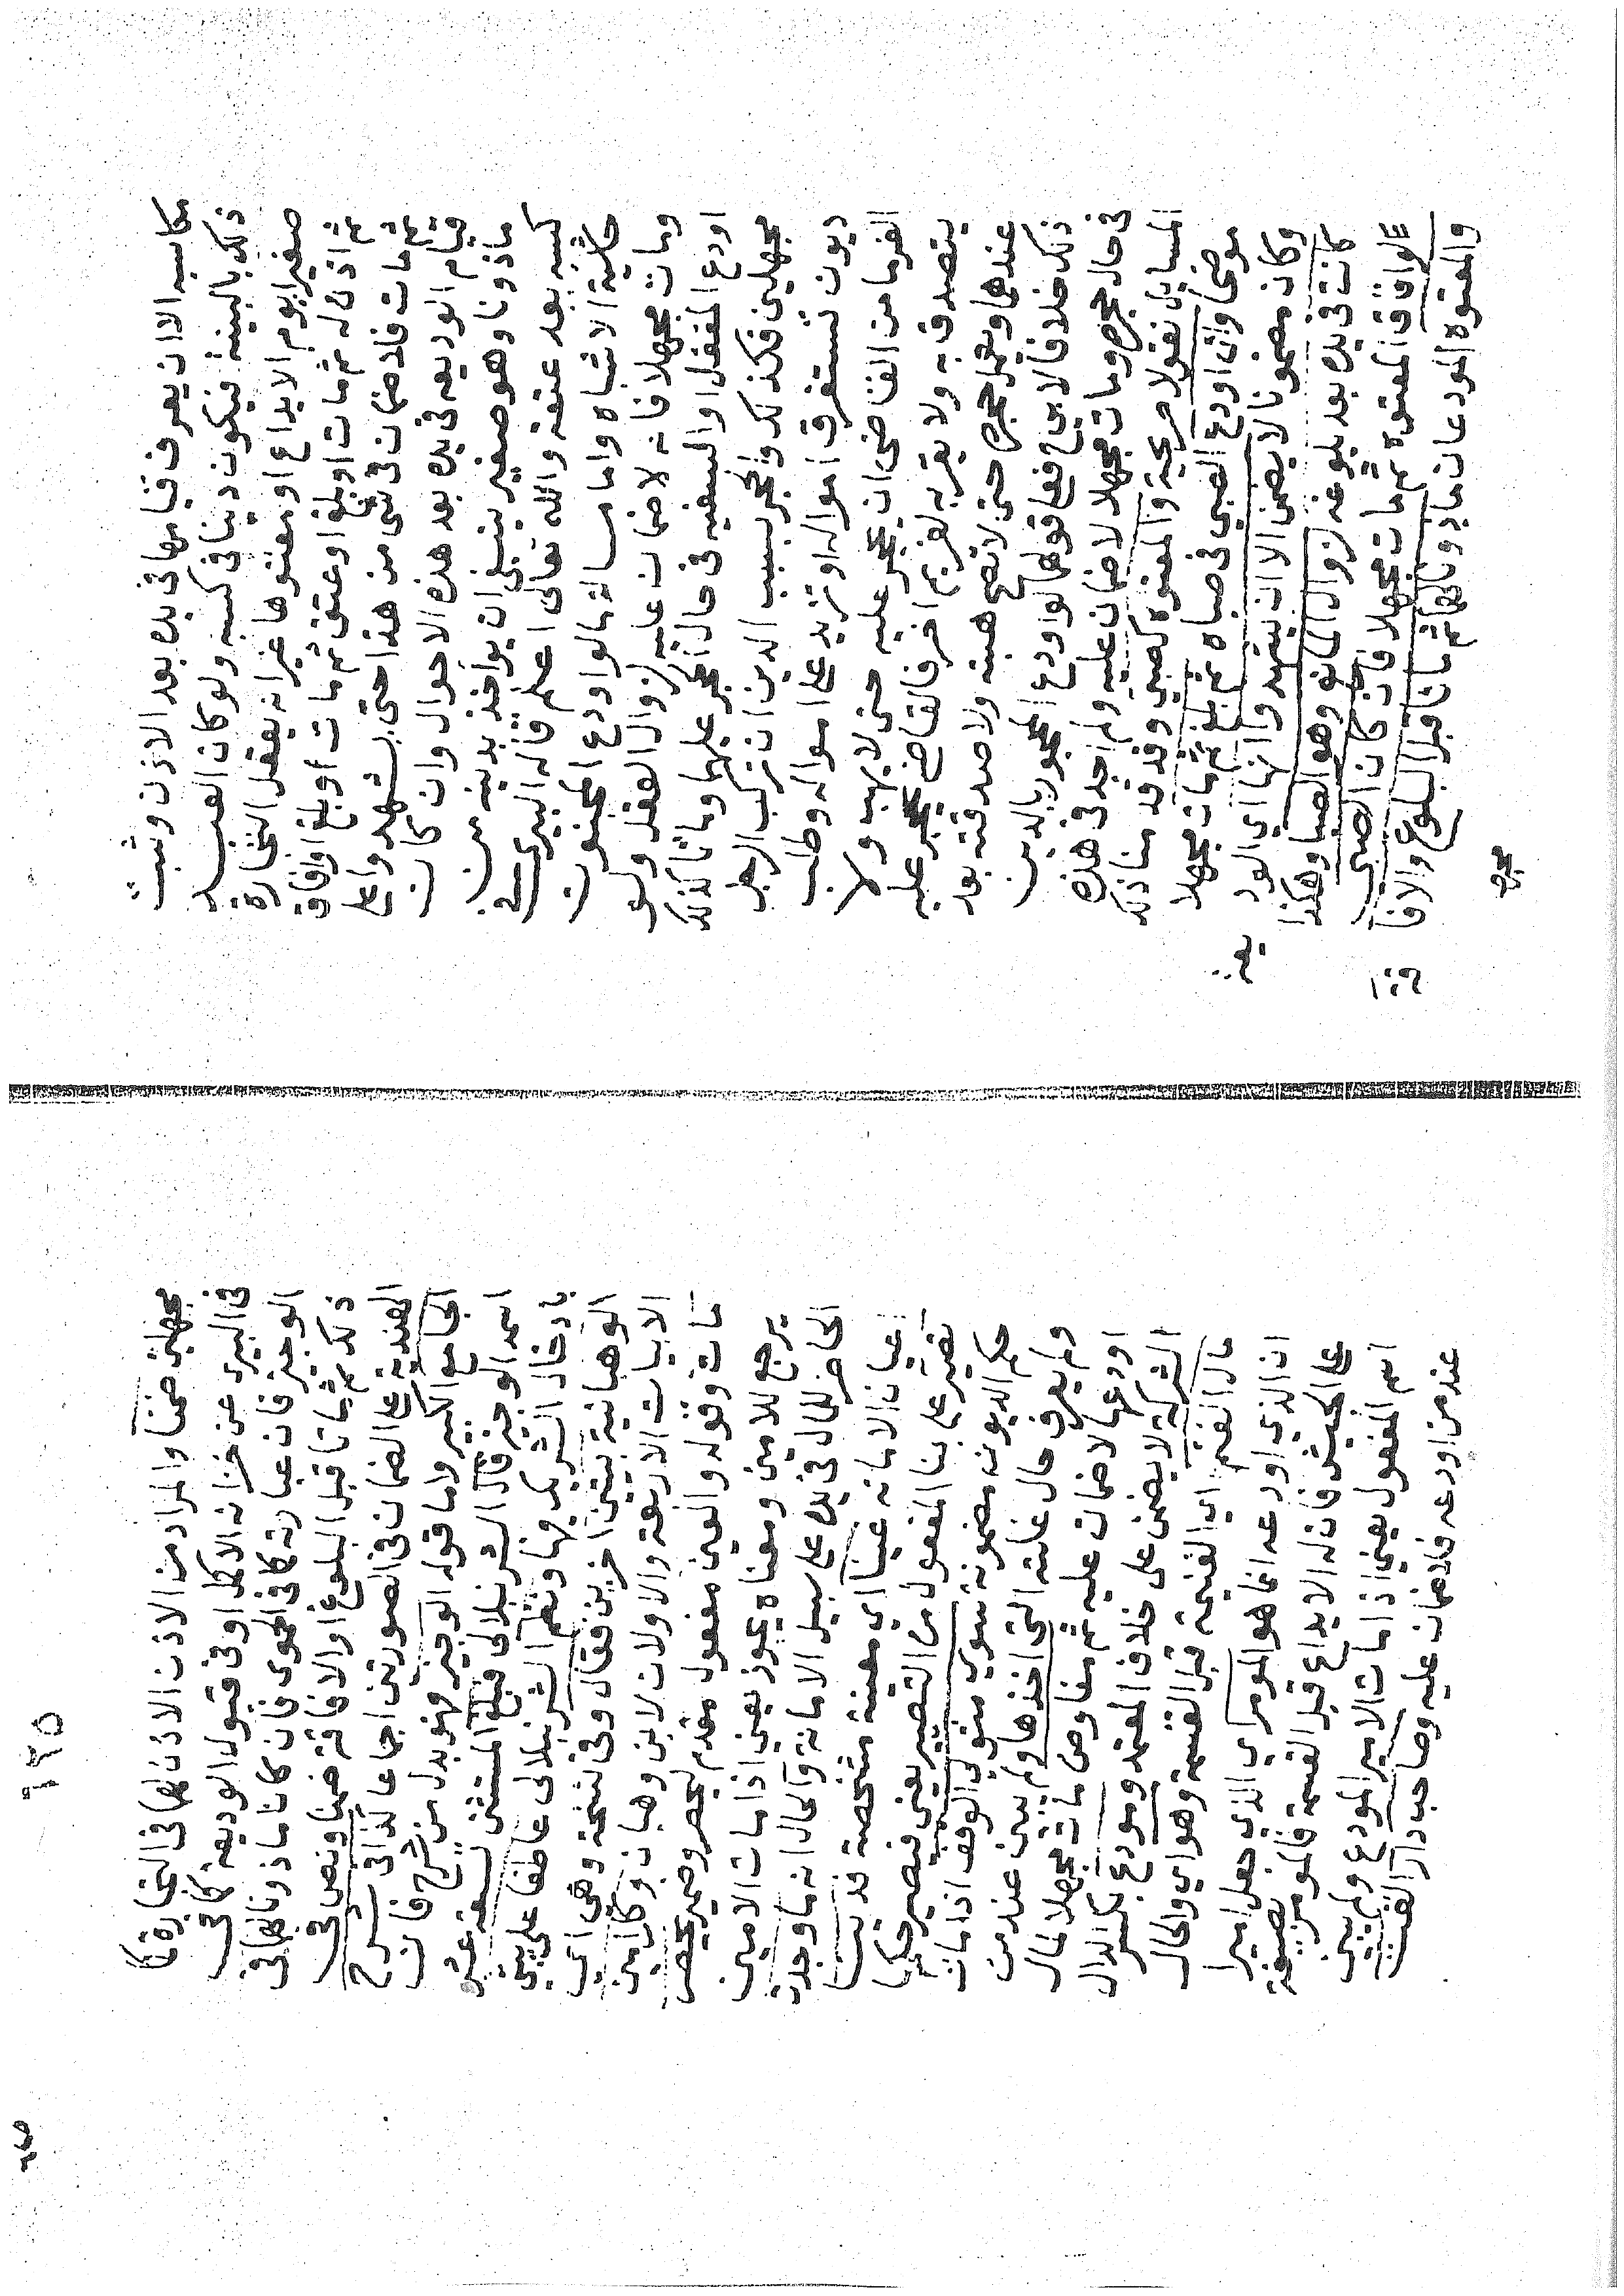 مكاسبه الا ان يعرف قيامها في يده بعد الاذن وثبت
ذلك بالبينة فيكون دينا في كسبه ولو كان العبد
صغيرا يوم الايداع او معتوها غير انه يعقل التجارة
ثم اذن له ثم مات او بلغ او عتق ثم مات او بلغ او افاق
ثم مات فلا ضمان في شي من هذا حتى يشهدوا على
قيام الوديعه في يده بعد هذه الاحوال وان كان
ماذونا وهو صغير ينبغي ان يواخذ بدينه من
كسبه بعد عتقه والله تعالى اعلم قاله البيري في
حاشية الاشباه واما مسالة ما لو اودع المجنون
ومات مجهلا فانه لا ضمان عليه لزوال العقل ولو
اودع المغفل او السفيه في حال الحجر عليهما وماتا كذلك
مجهلين فكذلك والحجر بسبب الدين ان تركب الرجل
ديون تستغرق امواله او تزيد على امواله وطلب
الغرما من القاضي ان يحجر عليه حتى لا يهب ولا
يتصدق به ولا يقر به لغريم اخر فالقاضي يحجر عليه
عندهما ويعمل حجره حتى لا تصح هبته ولا صدقته بعد
ذلك خلافا لابي ح فعلى قولهما لو اودع المحجور بالدين
في حال حجره ومات مجهلا لا ضمان عليه ولم اجد في هذه
المسايل نقولا مرعية والمعتوه كصبي وقد قدمنا ذلك
موضحا وان اودع الصبي في صباه ثم بلغ ثم مات مجهلا
وكان مضمونا لا يضمن الا ان يشهدوا انها اي الوديعة
كانت في يده بعد بلوغه لزوال المانع وهو الصبا وهكذا
لو افاق المعتوه ثم مات مجهلا فان كان الصبي
والمعتوه المودعان ماذونا لهما ثم ماتا قبل البلوغ والافاقة
١٣٥
مجهلين ضمنا والمراد من الاذن الاذن لهما في التجارة كما
في البيري عن خزانه الاكمل او في قبول الوديعة كما في
الوجيز فان عبارته كما في الحموي فان كانا ماذونا لهما في
ذلك ثم ماتا قبل البلوغ او الافاقة ضمنا ونص في
الهندية على الضمان في الصورتين اجماعا كذا في شرح
الجامع الكبير واما قوله الوجيز فهو بدل من شرح فان
اسمه الوجيز قال الشرنبلالي فبلغ المستثنى تسعه عشر
بادخال الشريك فيها ونظم الشرنبلالي عاطفا على بيتي
الوهبانية بيتين اخرين فقال وفي نسخة وهي اي
الابيات الاربعة والاولان لابن وهبان وكل امين
مات وقوله والعين مفعول مقدم ليحصر وضمير يحصر
يرجع للامين ومعناه يحوز يعني اذا مات الامين
الحاضر للمال في يده على سبيل الامانة والحال انه ما وجدت
عيان الامانه عينا اي معينة متخصصة فدينا
تصير على بنا المفعول من التصيير يعني فيصير حكمها
حكم الديون مضمونة سوى متولي الوقف اذا مات
ولم يعرف حال غلته التي اخذها ولم يبين عند من
اودعها لا ضمان عليه ثم مفاوض مات مجهلا لمال
الشركة لا يضمن على خلاف المعتمد ومودع بكسر الدال
مال الغنم اي الغنيمة قبل القسمة وهو اي والحال
ان الذي اودعه انما هو المومر اي الذي جعل اميرا
على الجيش فان له الايداع قبل القسمه فالمومر بصيغة
اسم المفعول يعني اذا مات الامير المودع ولم يبين
عند من اودعه فلا ضمان عليه وصاحب دار القت